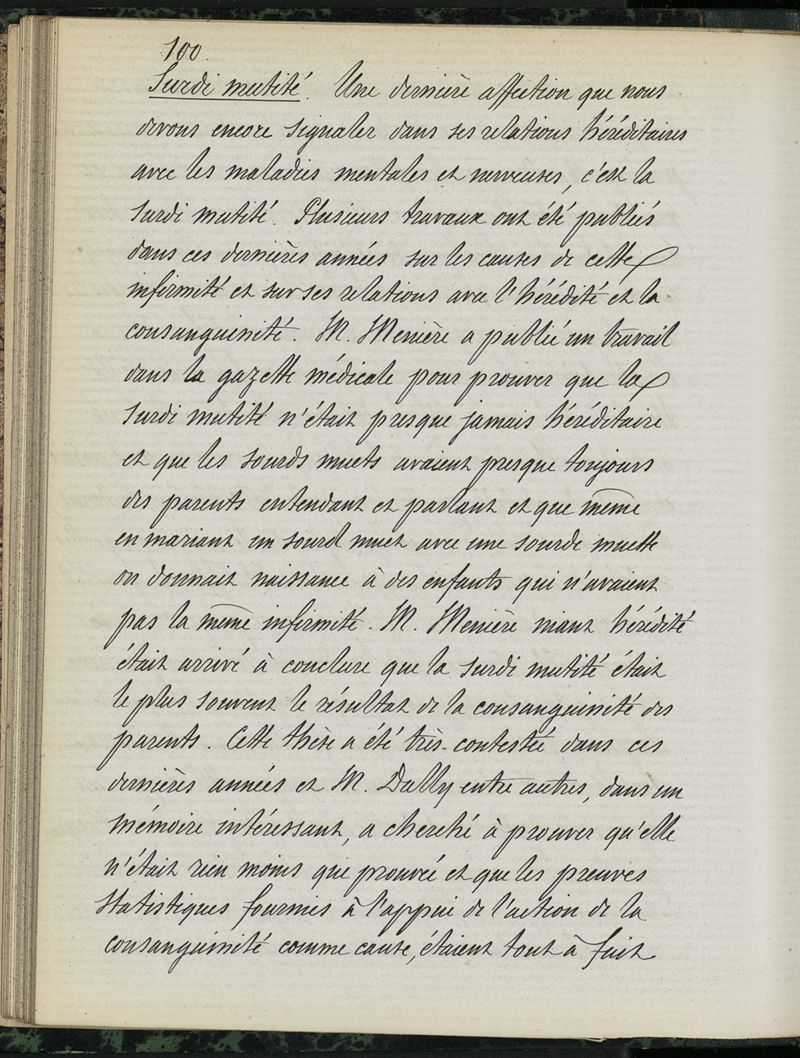 100.
Surdi mutité. Une dernière affection que nous
devons encore signaler dans ses relations héréditaires
avec les maladies mentales et nerveuses, c'est la
surdi mutité. Plusieurs travaux ont été publiés
dans ces dernières années sur les causes de cette
infirmité et sur ses relations avec l'hérédité et la
consanguinité. M. Menière a publié un travail
dans la gazette médicale pour prouver que la
surdi mutité n'était presque jamais héréditaire
et que les sourds muets avaient presque toujours
des parents entendant et parlant et que même
en mariant un sourd muet avec une sourde muette
on donnait naissance à des enfants qui n'avaient
pas la même infirmité. M. Menière niant hérédité
était arrivé à conclure que la surdi mutité était
le plus souvent le résultat de la consanguinité des
parents. Cette thèse a été très-contestée dans ces
dernières années et M. Dally entre autres, dans un
mémoire intéressant, a cherché à prouver qu'elle
n'était rien moins que prouvée et que les preuves
statistiques fournies à l'appui de l'action de la
consanguinité comme cause, étaient tout à fait